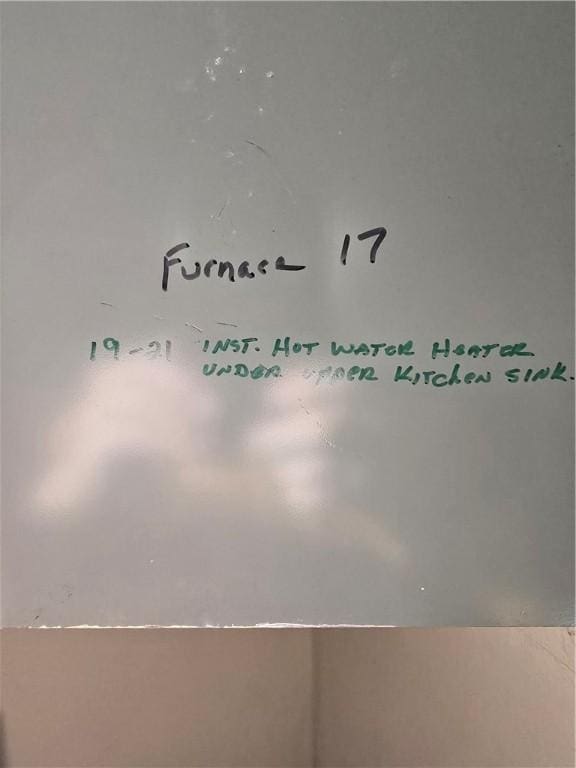 Furnace 17
19-21 INST. HOT WATER HEATER
UNDER UPPER KITCHEN SINK.